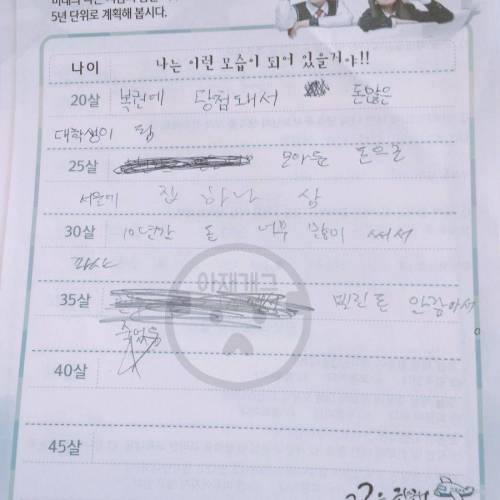 5년 단위로 계획해 봅시다.
나이 나는 이런 모습이 되어 있을거야!!
20살 복권에 당첨돼서 돈많은
대학생이 됨
25살 모아둔 돈으로
서울에 집 하나 삼
30살 10년간 돈 너무 많이 써서
파산
아재개그
35살 빌린돈 안갚아서
죽었음
40살
45살